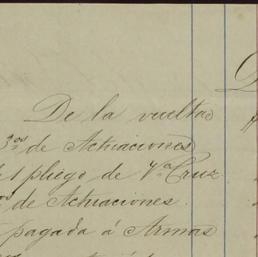 De la vuelta
3ºs de Actuaciones
1 pliego de Vª Cruz
ºs de Actuaciones.
pagada á Armas